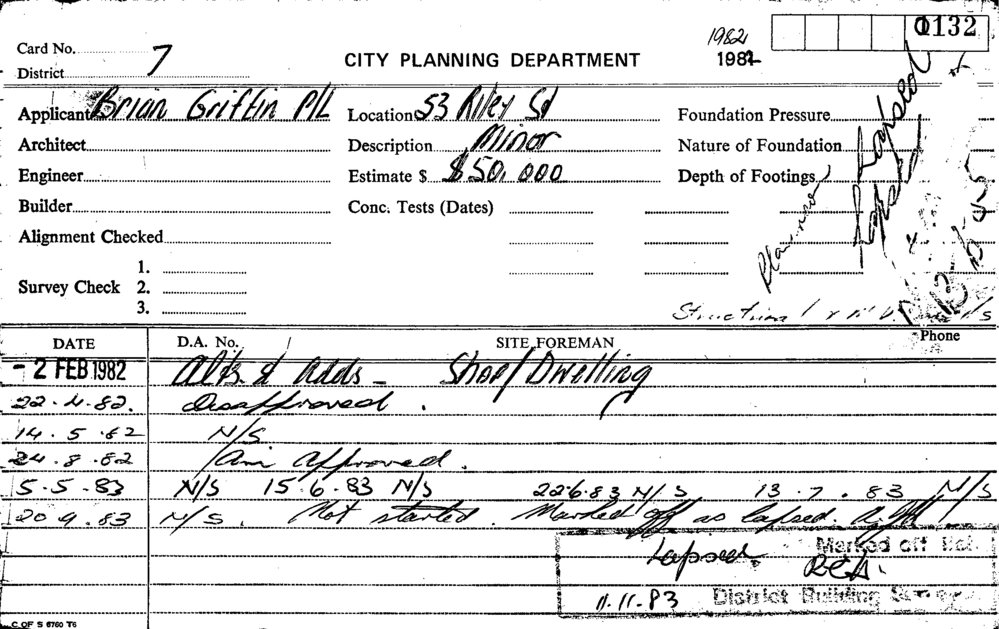 1982 0132
Card No. 7
CITY PLANNING DEPARTMENT 1982
District
Applicant Brian Griffin P/L Location 53 Riley St Foundation Pressure
Architect Description Minor Nature of Foundation
Engineer Estimate $ $50,000 Depth of Footings
Builder Conc. Tests (Dates)
Alignment Checked
Survey Check 1.
2.
3.
Planning Lapsed
Lapsed
Structural
DATE D.A. No. / SITE FOREMAN Phone
- 2 FEB 1982 Alts & Adds - Shop/Dwelling
22.4.82. Disapproved.
14.5.82 N/S
24.8.82 Approved.
5.5.83 N/S 15.6.83 N/S 22.6.83 N/S 13.7.83 N/S
20.9.83 N/S. Not started. Marked off as lapsed.
Marked off list
Lapsed
11.11.83 District Building Surveyor
C OF S 6760 T6